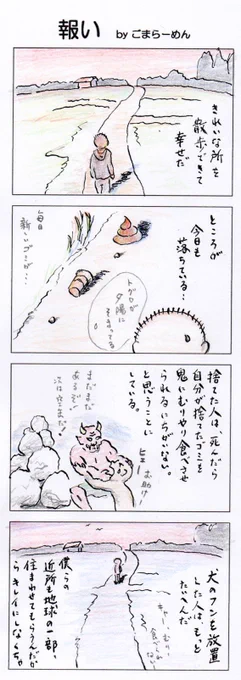 報い by ごまらーめん
きれいな所を
散歩できて
幸せだ
ところが
今日も
落ちている…
トグロが
夕陽に
そまってる
毎日
新しいゴミが…
捨てた人は、死んだら
自分が捨てたゴミを
鬼にむりやり食べさせ
られるにちがいない。
と思うことに
している。
まだまだ
あるぞ
次は空きカンだ!
ヒェー
お助けー
犬のフンを放置
した人は、もっと
たいへんだ
僕らの
近所も地球の一部、
住まわせてもらうんだか
ら キレイにしなくちゃ。